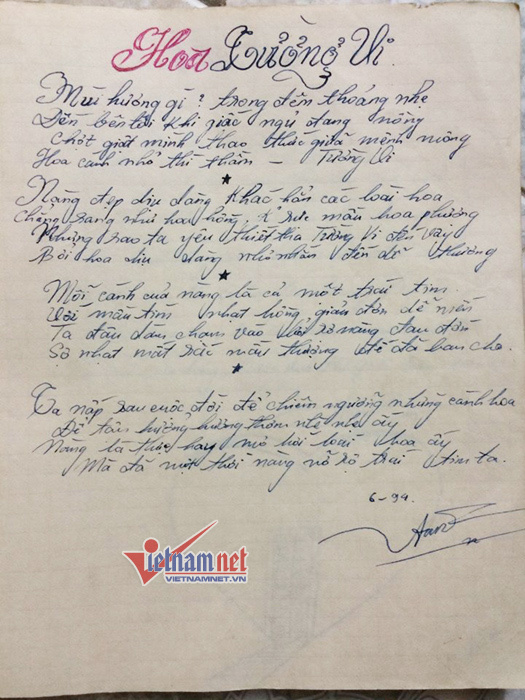 Hoa Tường Vi
Mùi hương gì? trong đêm thoáng nhẹ
Đến bên tôi khi giấc ngủ đang nồng
Chợt giật mình thao thức giữa mênh mông
Hoa cánh nhỏ thì thầm - Tường Vi
Nàng đẹp dịu dàng khác hẳn các loài hoa
Chẳng sang như hoa hồng, k rực màu hoa phượng
Nhưng sao ta yêu thiết tha Tường Vi đến vậy
Bởi hoa dịu dàng nhỏ nhắn đến dễ thương
Mỗi cánh của nàng là cả một trái tim
Với màu tím nhạt hồng, giản đơn dễ mến
Ta đâu dám chạm vào vì sợ nàng đau đớn
Sợ nhạt mất sắc màu thượng đế đã ban cho.
Ta nấp sau cuộc đời để chiêm ngưỡng những cánh hoa
Để tận hưởng hương thơm nhè nhẹ ấy
Nàng là thực hay mơ hỡi loài hoa ấy
Mà đã một thời nàng nở rộ trái tim ta.
6-99
Vietnamnet
VIETNAMNET.VN